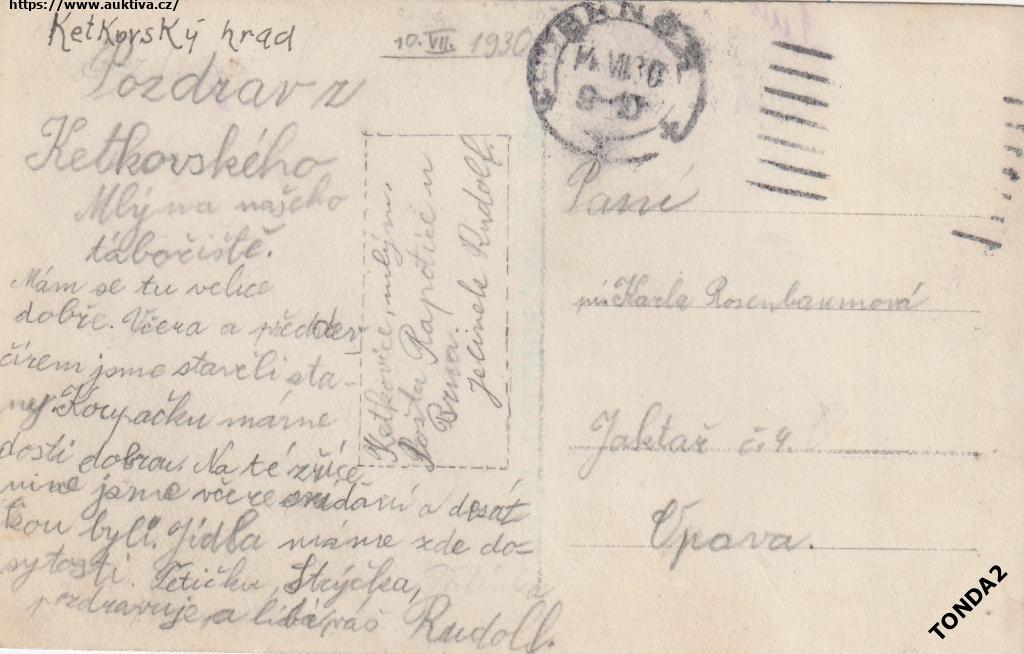 https://www.auktiva.cz/
Ketkovský hrad
10. VII. 1930
Pozdrav z
Ketkovského
Mlýna našeho
tábořiště.
Mám se tu velice
dobře. Včera a předder
čírem jsme staveli sta-
ny. Koupačku máme
dosti dobrou. Na té zříce
nine jsme včera snídání a desát
kou byli. Jídla máme zde do-
sytosti. Tetičku, Strýčka,
pozdravuje a líbá váš Rudolf.
Ketkovice, mlýn.
Pošta Rapotice u
Brna.
Jelinek Rudolf.
14 VII 30
9-10
Paní
Karla Rosenbaumová
Jaktař č. 4.
Opava.
TONDA2